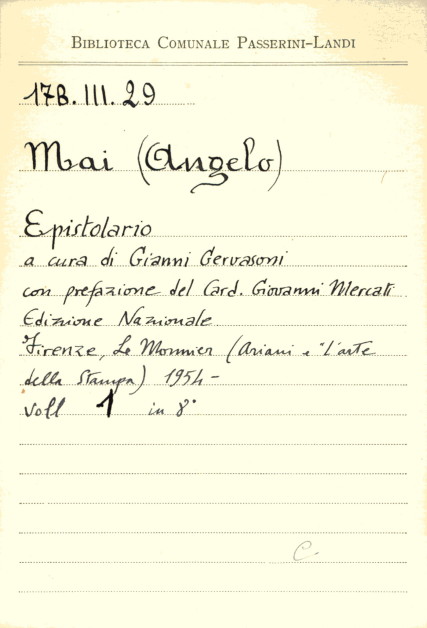 BIBLIOTECA COMUNALE PASSERINI-LANDI
17B.III.29
Mai (Angelo)
Epistolario
a cura di Gianni Gervasoni
con prefazione del Card. Giovanni Mercati
Edizione Nazionale
Firenze, Le Monnier (Ariani e "L'arte
della Stampa) 1954-
voll 1 in 8°
C.